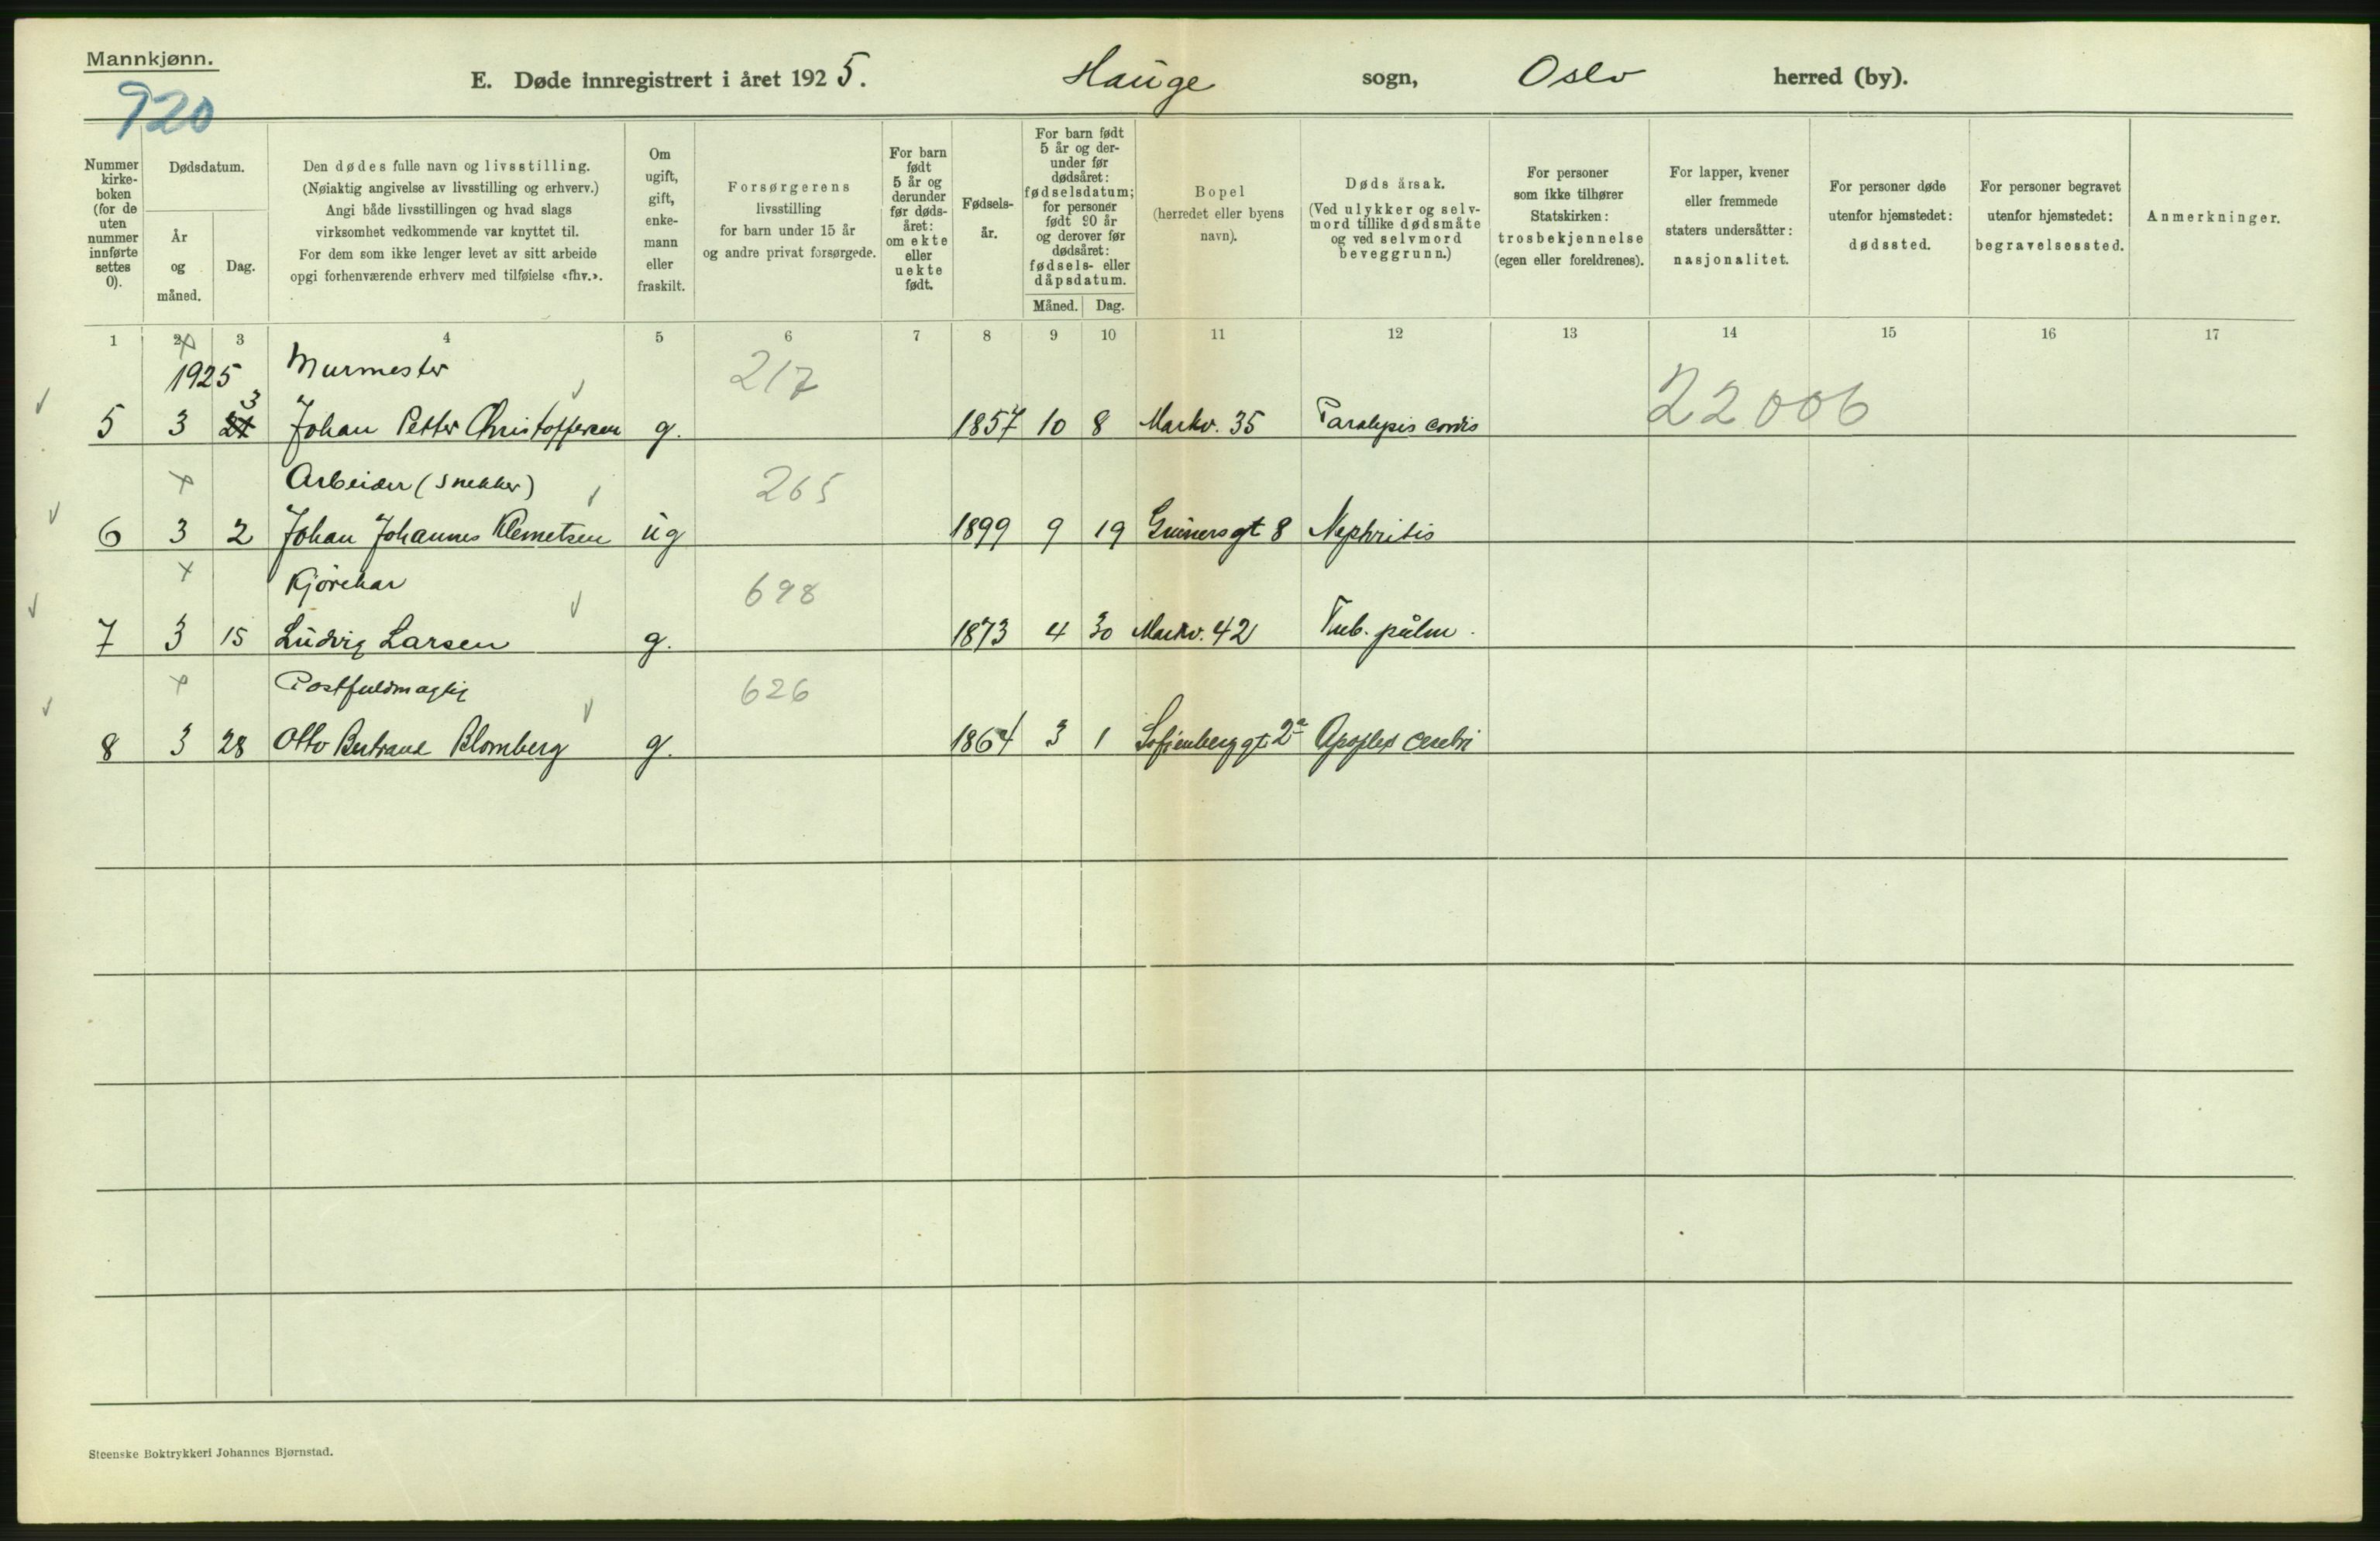 Mannkjønn.
920
E. Døde innregistrert i året 1925. Hauge sogn, Oslo herred (by).
Nummer kirke-boken (for de uten nummer innførte settes 0).
Dødsdatum.
År og måned.
Dag.
Den dødes fulle navn og livsstilling.
(Nøiaktig angivelse av livsstilling og erhverv.)
Angi både livsstillingen og hvad slags
virksomhet vedkommende var knyttet til.
For dem som ikke lenger levet av sitt arbeide
opgi forhenværende erhverv med tilføielse «fhv.».
Om ugift, gift, enke-mann eller fraskilt.
Forsørgerens
livsstilling
for barn under 15 år
og andre privat forsørgede.
For barn født 5 år og derunder før døds-året: om ekte eller uekte født.
Fødsels-år.
For barn født 5 år og der-under før dødsåret: fødselsdatum; for personer født 90 år og derover før dødsåret: fødsels- eller dåpsdatum.
Måned. Dag.
Bopel
(herredet eller byens navn).
Dødsårsak.
(Ved ulykker og selv-mord tillike dødsmåte og ved selvmord beveggrunn.)
For personer som ikke tilhører Statskirken: trosbekjennelse (egen eller foreldrenes).
For lapper, kvener eller fremmede staters undersåtter: nasjonalitet.
For personer døde utenfor hjemstedet: dødssted.
For personer begravet utenfor hjemstedet: begravelsessted.
Anmerkninger.
1 2 3 4 5 6 7 8 9 10 11 12 13 14 15 16 17
1925 Murmester 217
5 3 3 Johan Petter Christoffersen g. 1857 10 8 Markv. 35 Paralysis cordis 22006
Arbeider (snekker) 265
6 3 2 Johan Johannes Klemetsen ug 1899 9 19 Grünersgt 8 Nephritis
Kjørekar 698
7 3 15 Ludvig Larsen g. 1873 4 30 Markv. 42 Tub. pulm.
Postfuldmægtig 626
8 3 28 Otto Bertrand Blomberg g. 1864 3 1 Sofienberggt. 2a Apoplex cerebri
Steenske Boktrykkeri Johannes Bjørnstad.